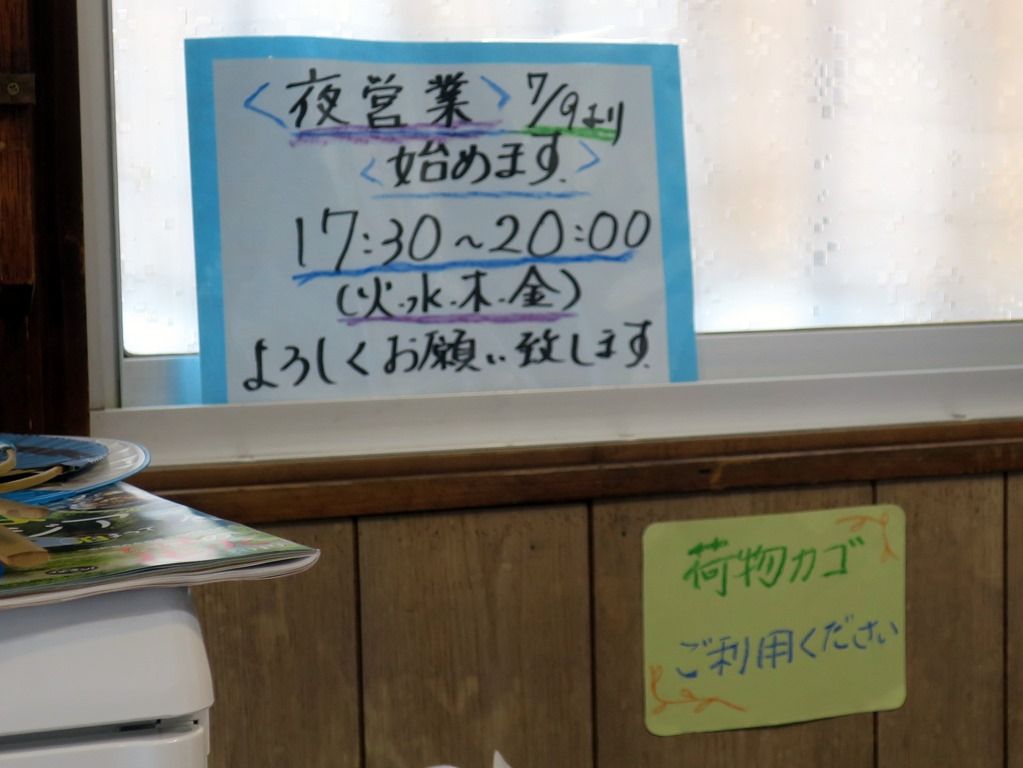 <夜営業> 7/9より
<始めます.>
17:30~20:00
(火.水.木.金)
よろしくお願い致します.
荷物カゴ
ご利用ください